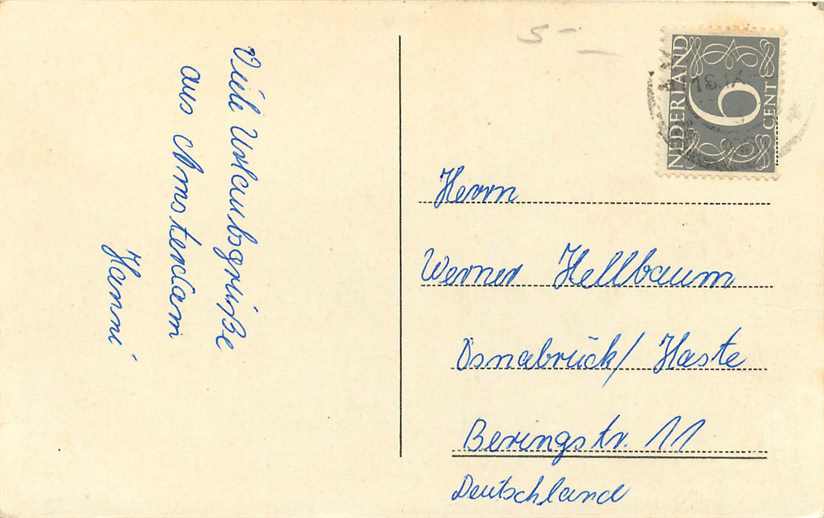 Viele Urlaubsgrüße
aus Amsterdam
Hanni
5-
NEDERLAND
6
CENT
Herrn
Werner Hellbaum
Osnabrück/Haste
Beringstr. 11
Deutschland